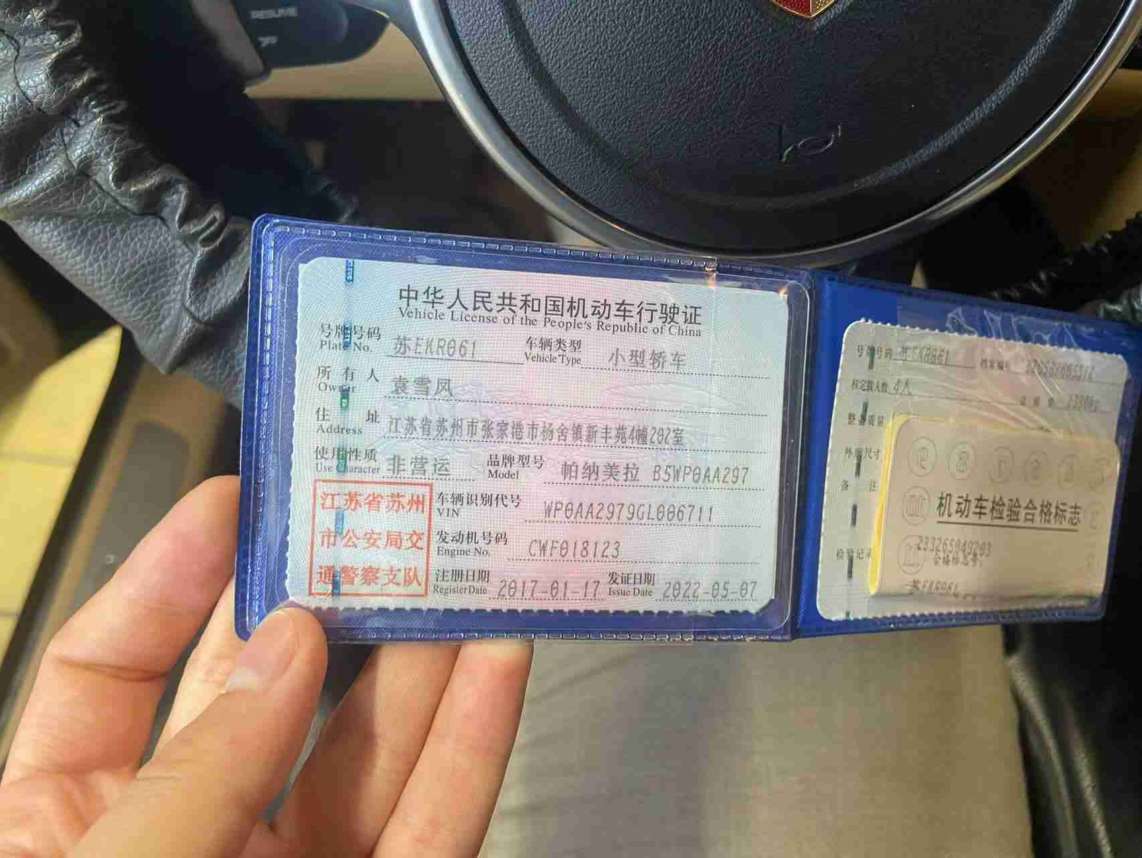 RESUME
中华人民共和国机动车行驶证
Vehicle License of the People's Republic of China
号牌号码 苏EKR061 车辆类型 小型轿车
Plate No. Vehicle Type
所有人 袁雪凤
Owner
住址 江苏省苏州市张家港市杨舍镇新丰苑4幢202室
Address
使用性质 非营运 品牌型号 帕纳美拉 BSWP0AA297
Use Character Model
江苏省苏州
市公安局交
通警察支队
车辆识别代号 WP0AA2979GL006711
VIN
发动机号码 CWF018123
Engine No.
注册日期 2017-01-17 发证日期 2022-05-07
Register Date Issue Date
号牌号码 苏EKR061 档案编号
核定载人数 4人
整备质量
外廓尺寸
备注
检验记录
机动车检验合格标志
苏EKR061